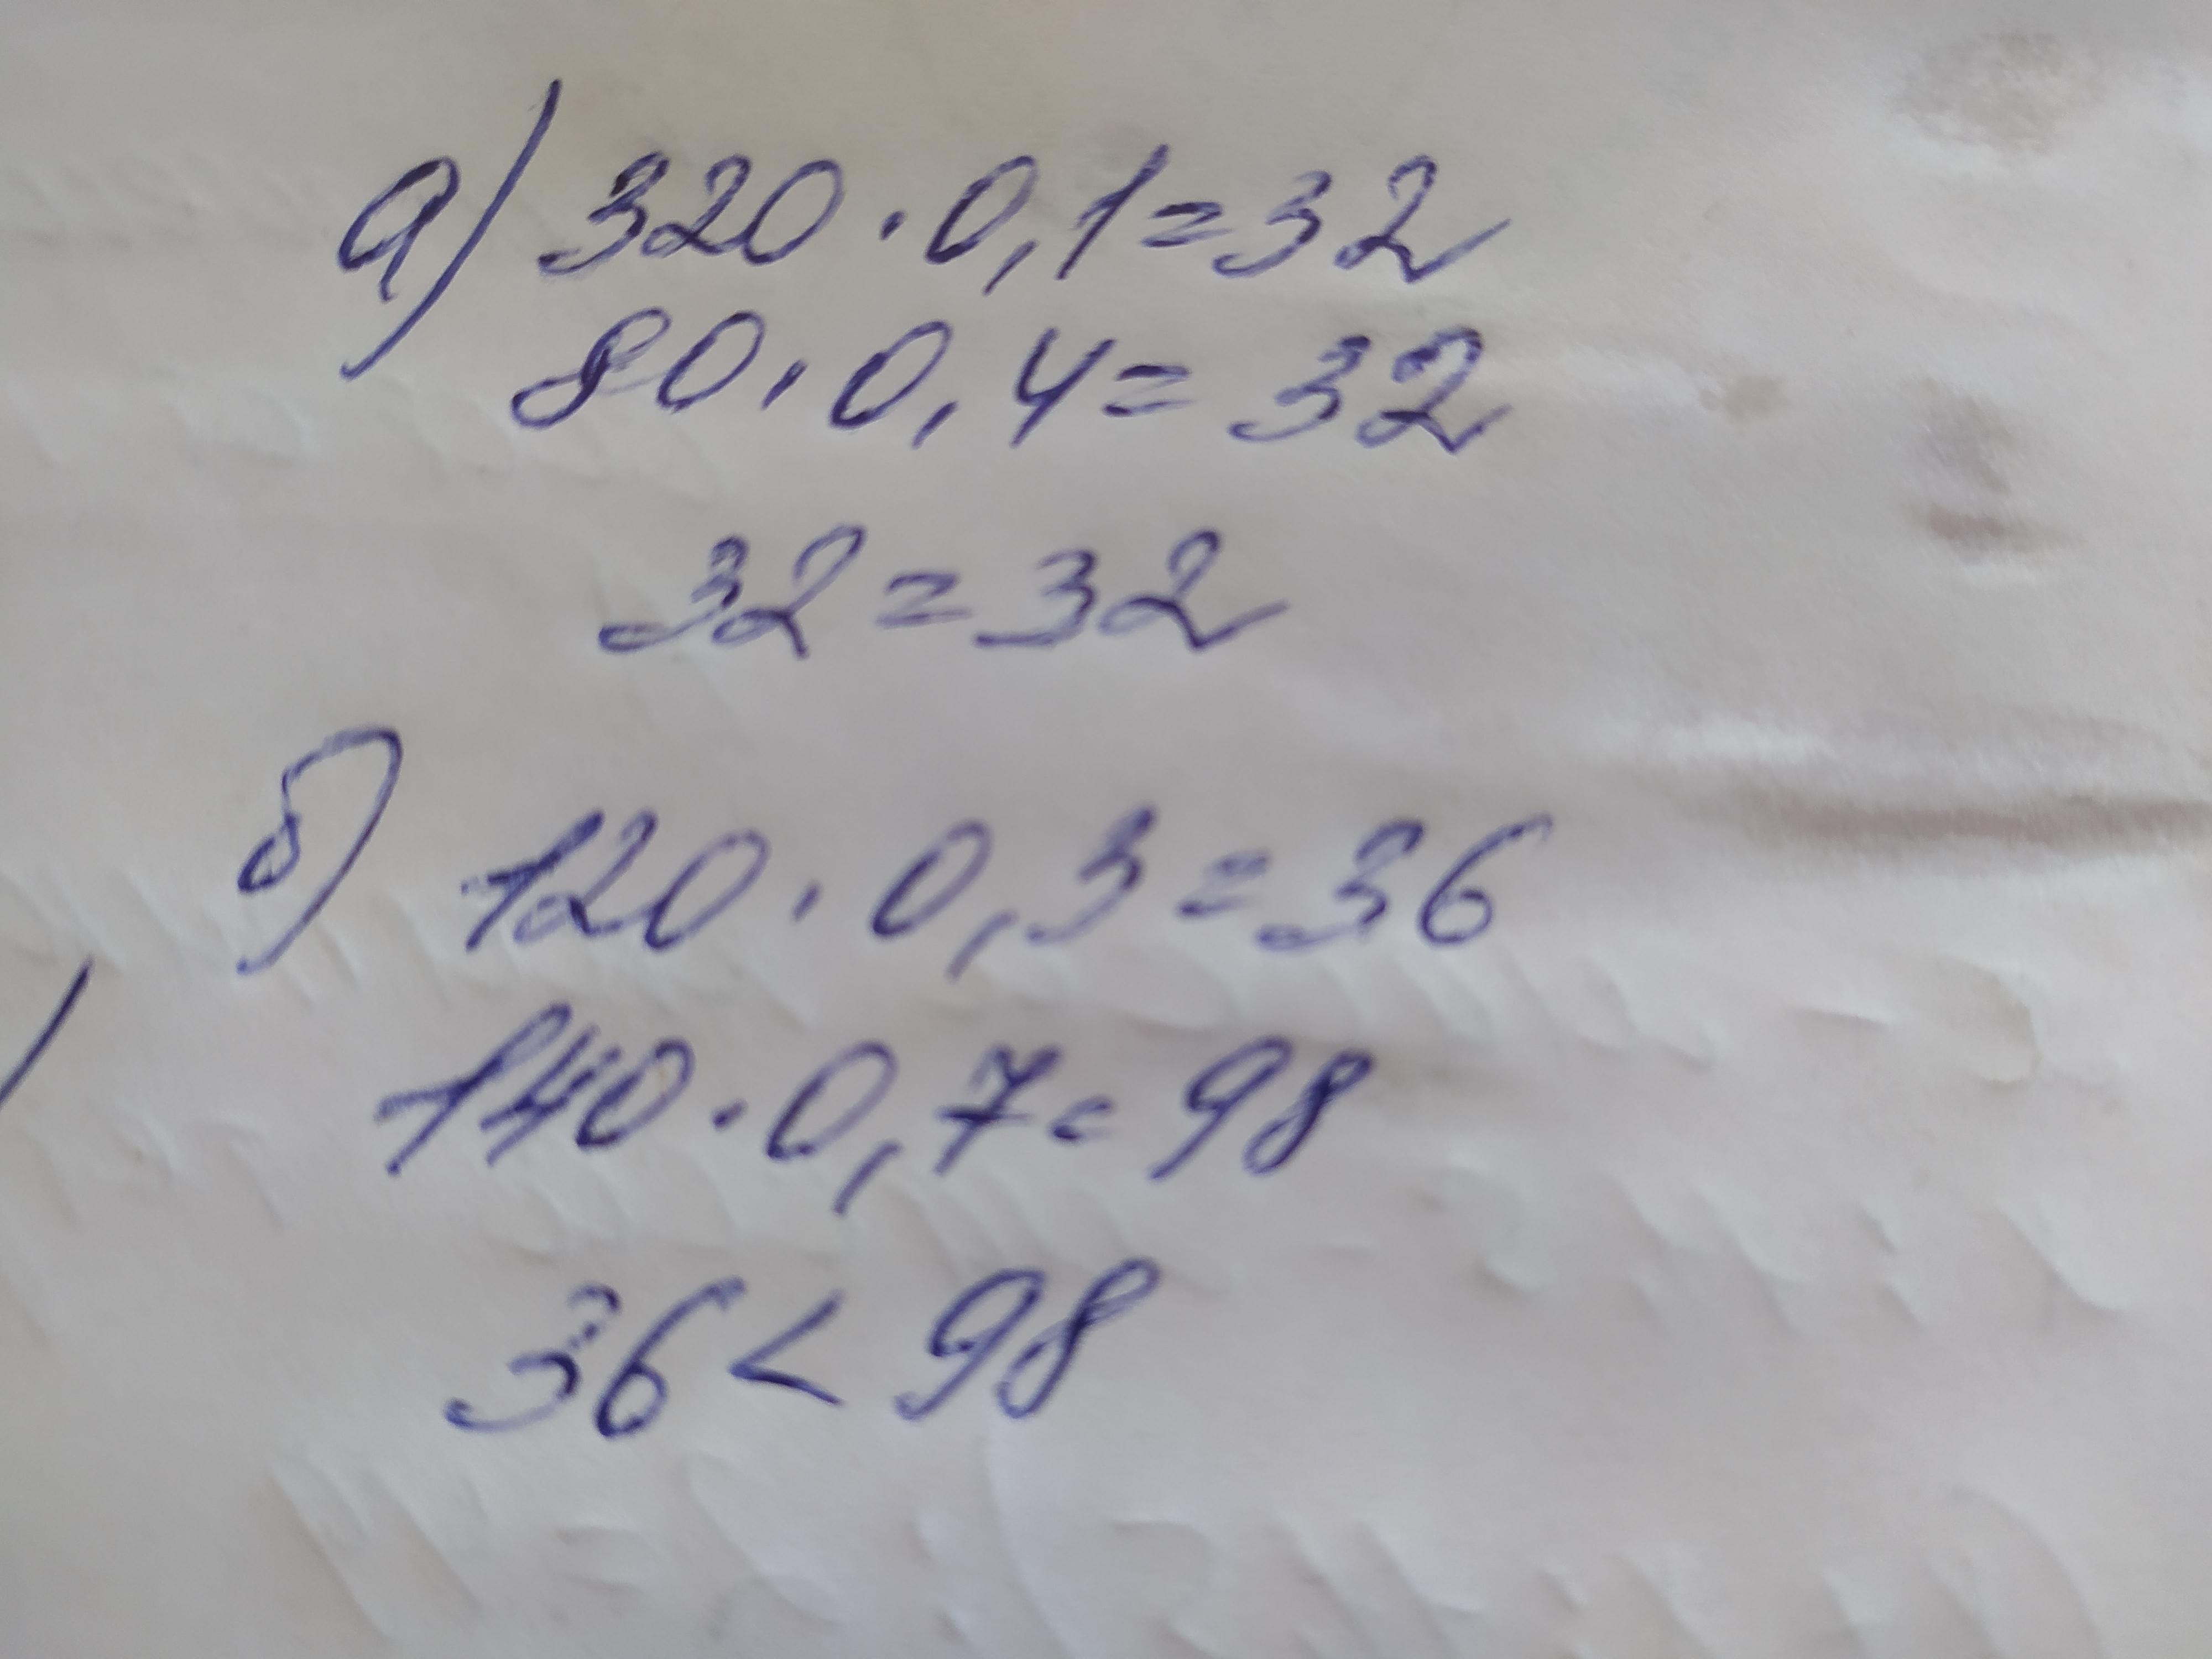 а) 320 · 0,1 = 32
80 · 0,4 = 32
32 = 32
б) 120 · 0,3 = 36
140 · 0,7 = 98
36 < 98